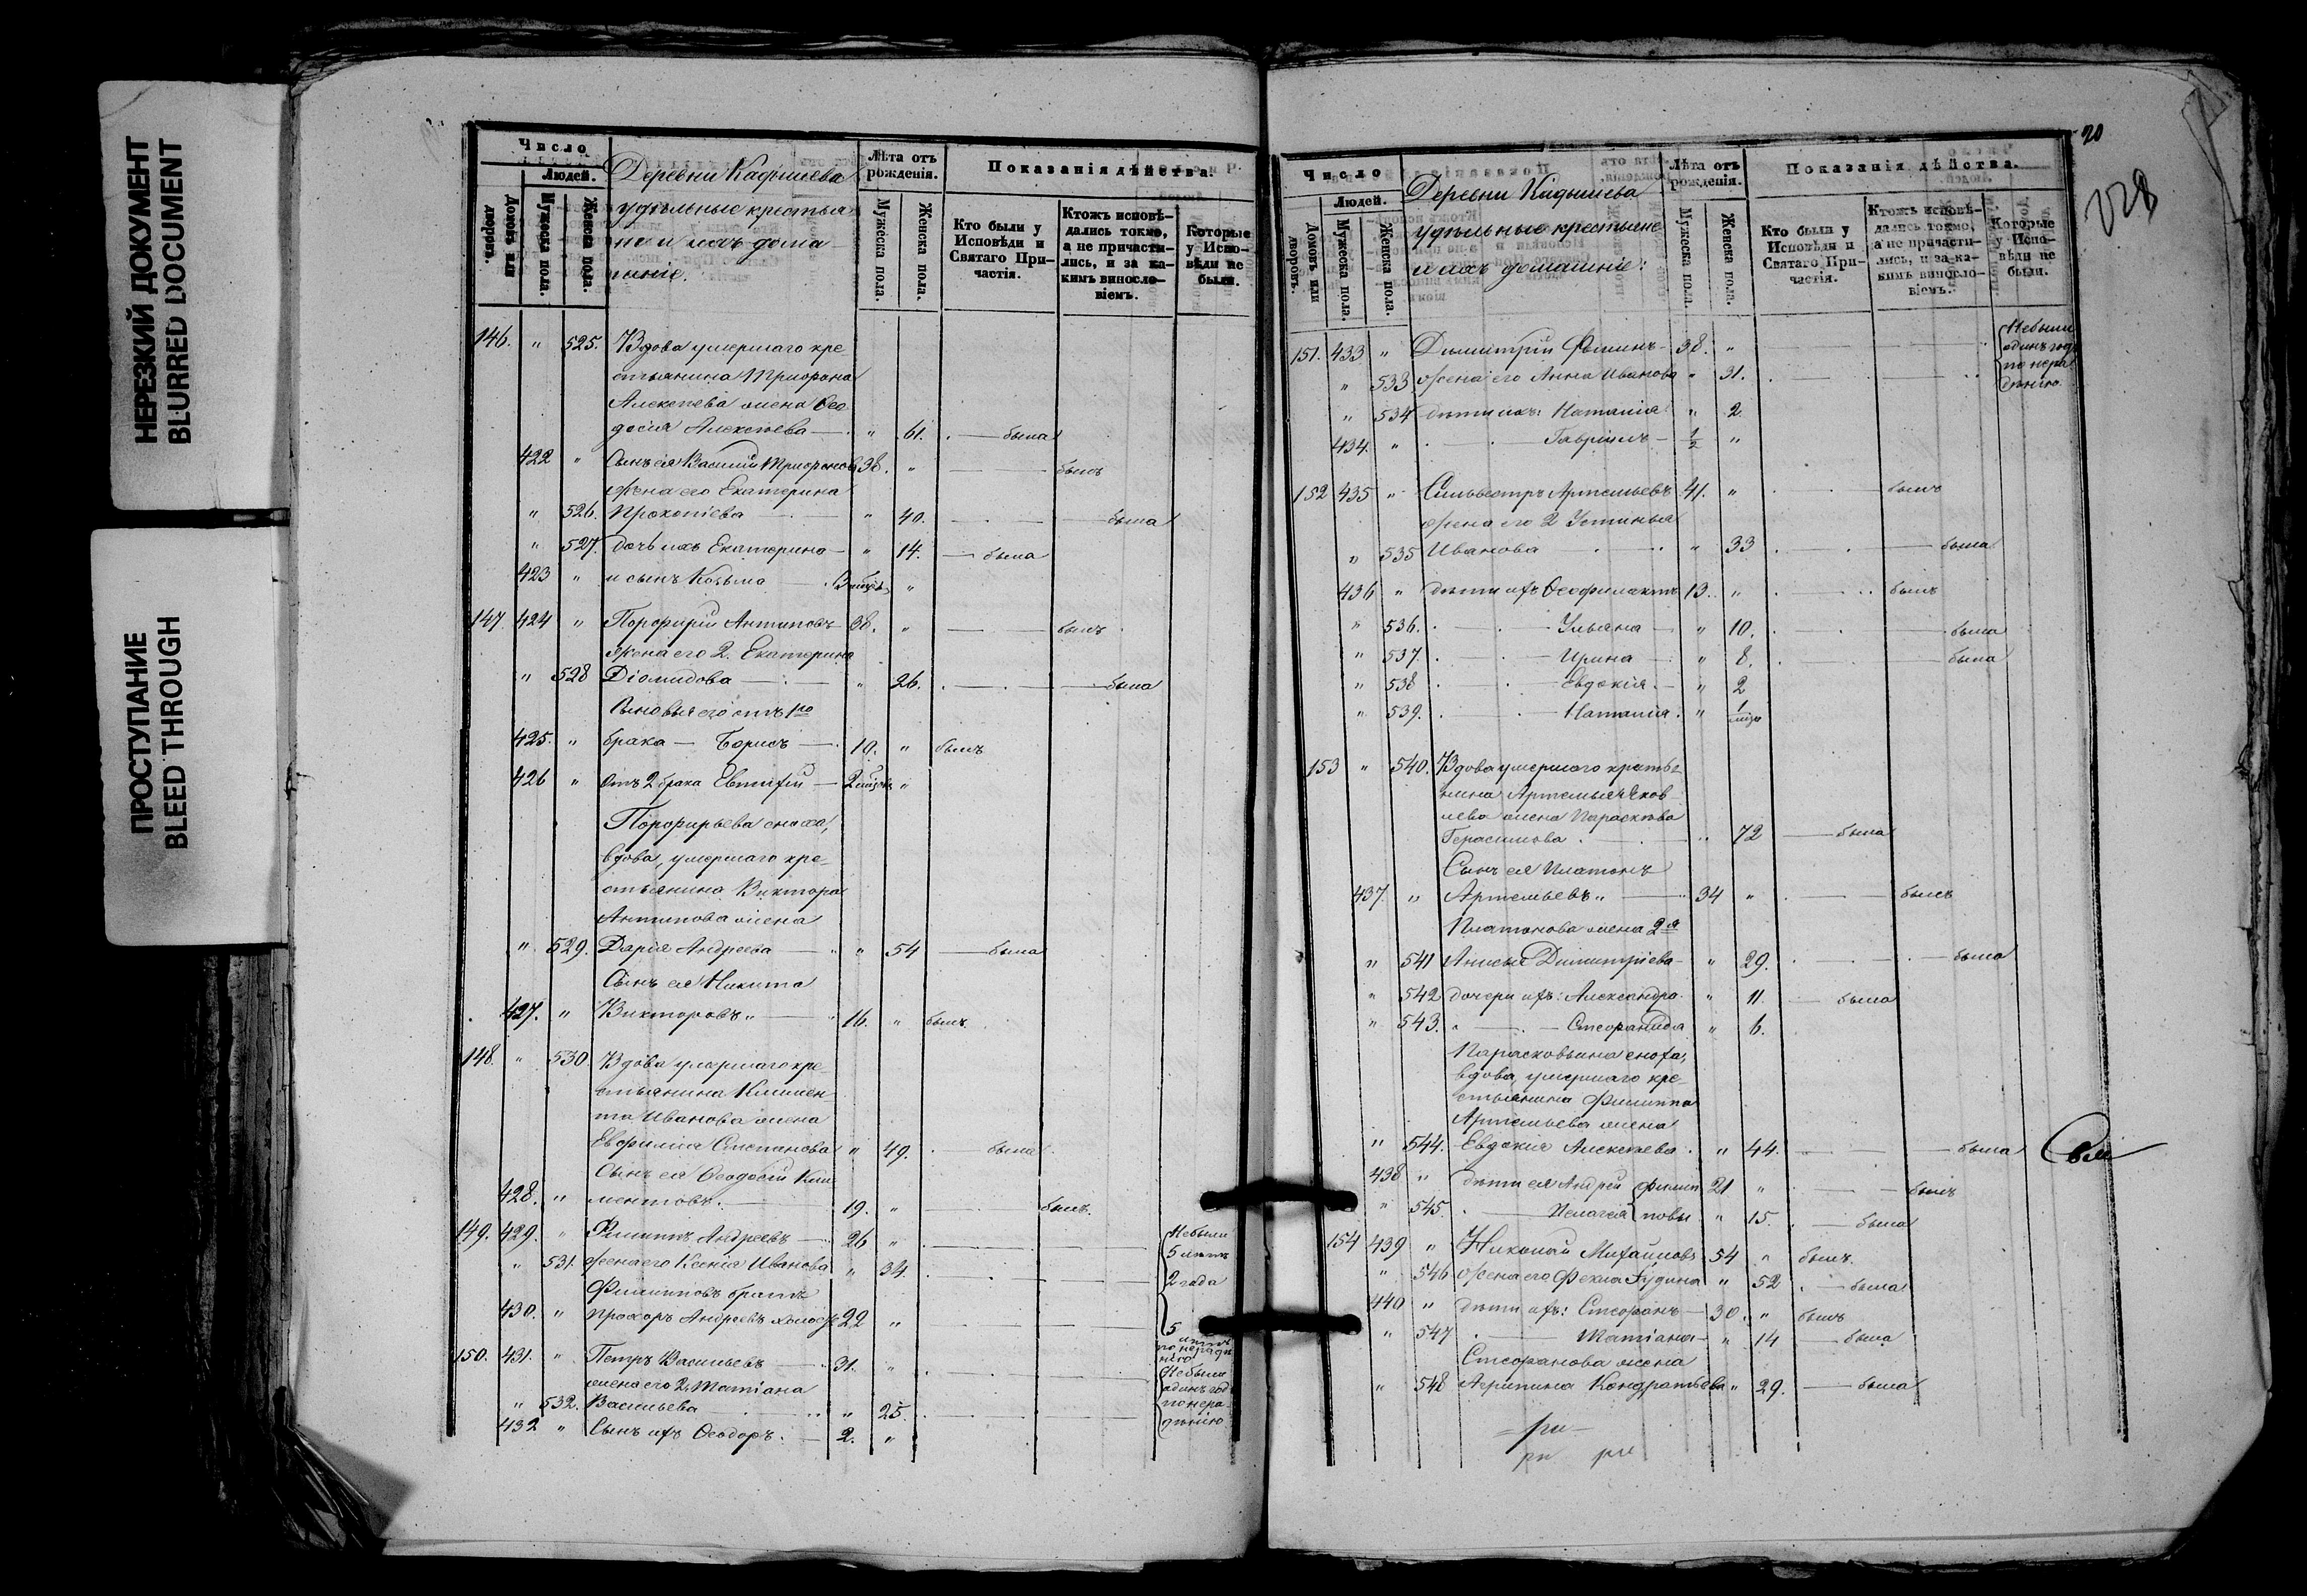 НЕРЕЗКИЙ ДОКУМЕНТ
BLURRED DOCUMENT
ПРОСТУПАНИЕ
BLEED THROUGH
Число
Людей.
Домовъ или дворовъ.
Мужеска пола.
Женска пола.
Деревни Кадышева
удѣльные крестья
не и ихъ дома
шніе.
Лѣта отъ рожденія.
Мужеска пола.
Женска пола.
Показанія дѣйства.
Кто были у Исповѣди и Святаго Причастія.
Ктожъ исповѣдались токмо, а не причастились, и за какимъ винословіемъ.
Которые у Исповѣди не были.
146. " 525. Вдова умершаго кре
стьянина Трифона
Алексѣева жена Ѳео
досія Алексѣева " 61. была
422 " Сынъ ея Василій Трифоновъ 38. " былъ
жена его Екатерина
" 526. Прокопіева " 40. была
" 527. дочь ихъ Екатерина " 14. была
423 " и сынъ Козьма "
147. 424 " Порфирій Антиповъ 38. " былъ
жена его 2. Екатерина
" 528 Діомидова " 26. была
Сыновья его отъ 1го
425. " брака Борисъ 10. " былъ
426 " отъ 2 брака Евтихій "
Порфирьева сноха,
вдова, умершаго кре
стьянина Виктора
Антипова жена
" 529. Дарія Андреева " 54 была
Сынъ ея Никита
427. " Викторовъ 16. " былъ
148. " 530 Вдова умершаго кре
стьянина Климен
та Иванова жена
Евфимія Степанова " 49. была
Сынъ ея Ѳеодосій Кли
428. " ментовъ. 19. " былъ.
149. 429. " Филиппъ Андреевъ 26 "
Не были
5 лѣтъ
" 531. жена его Ксенія Иванова " 34.
2 года
Филипповъ братъ
430. " Прохоръ Андреевъ холостъ 22 "
5 лѣтъ
по нерадѣ
нію
150. 431. " Петръ Васильевъ 31. "
жена его 2. Татіана
" 532. Васильева " 25.
Не были
одинъ годъ
по нера
дѣнію
432 " Сынъ ихъ Ѳеодоръ. 2. "
20
228
Число
Людей.
Домовъ или дворовъ.
Мужеска пола.
Женска пола.
Деревни Кадышева
удѣльные крестьяне
и ихъ домашніе:
Лѣта отъ рожденія.
Мужеска пола.
Женска пола.
Показанія дѣйства.
Кто были у Исповѣди и Святаго Причастія.
Ктожъ исповѣдались токмо, а не причастились, и за какимъ винословіемъ.
Которые у Исповѣди не были.
151. 433 " Димитрій Ѳоминъ 38. "
Не были
одинъ годъ
по нера
дѣнію
" 533 жена его Анна Иванова " 31.
" 534 дѣти ихъ: Наталія " 2
434. " Гавріилъ 1/2 "
152 435 " Сильвестръ Артемьевъ 41. " былъ
жена его 2 Устинья
" 535 Иванова " 33 была
436 " дѣти ихъ Ѳеофилактъ 13. " былъ
" 536. Ульяна " 10. была
" 537. Ирина " 8. была
" 538 Евдокія " 2
" 539. Наталія "
153 " 540. Вдова умершаго крестья
нина Артемья Яков
лева жена Параскева
Герасимова " 72 была
Сынъ ея Платонъ
437. " Артемьевъ 34 " былъ
Платонова жена 2я
" 541 Анисья Димитріева " 29. была
" 542 дочери ихъ: Александра " 11. была
" 543. Стефанида " 6.
Парасковьина сноха,
вдова, умершаго кре
стьянина Филиппа
Артемьева жена
" 544. Евдокія Алексѣева " 44. была
438 " дѣти ея Андрей Филип 21 " былъ
" 545. Пелагея повы " 15. была
154 439 " Николай Михайловъ 54 " былъ
" 546 жена его Ѳекла Іудина " 52 была
440 " дѣти ихъ: Стефанъ 30. " былъ
" 547 Татіана " 14 была
Стефанова жена
" 548 Агрипина Кондратьева " 29. была